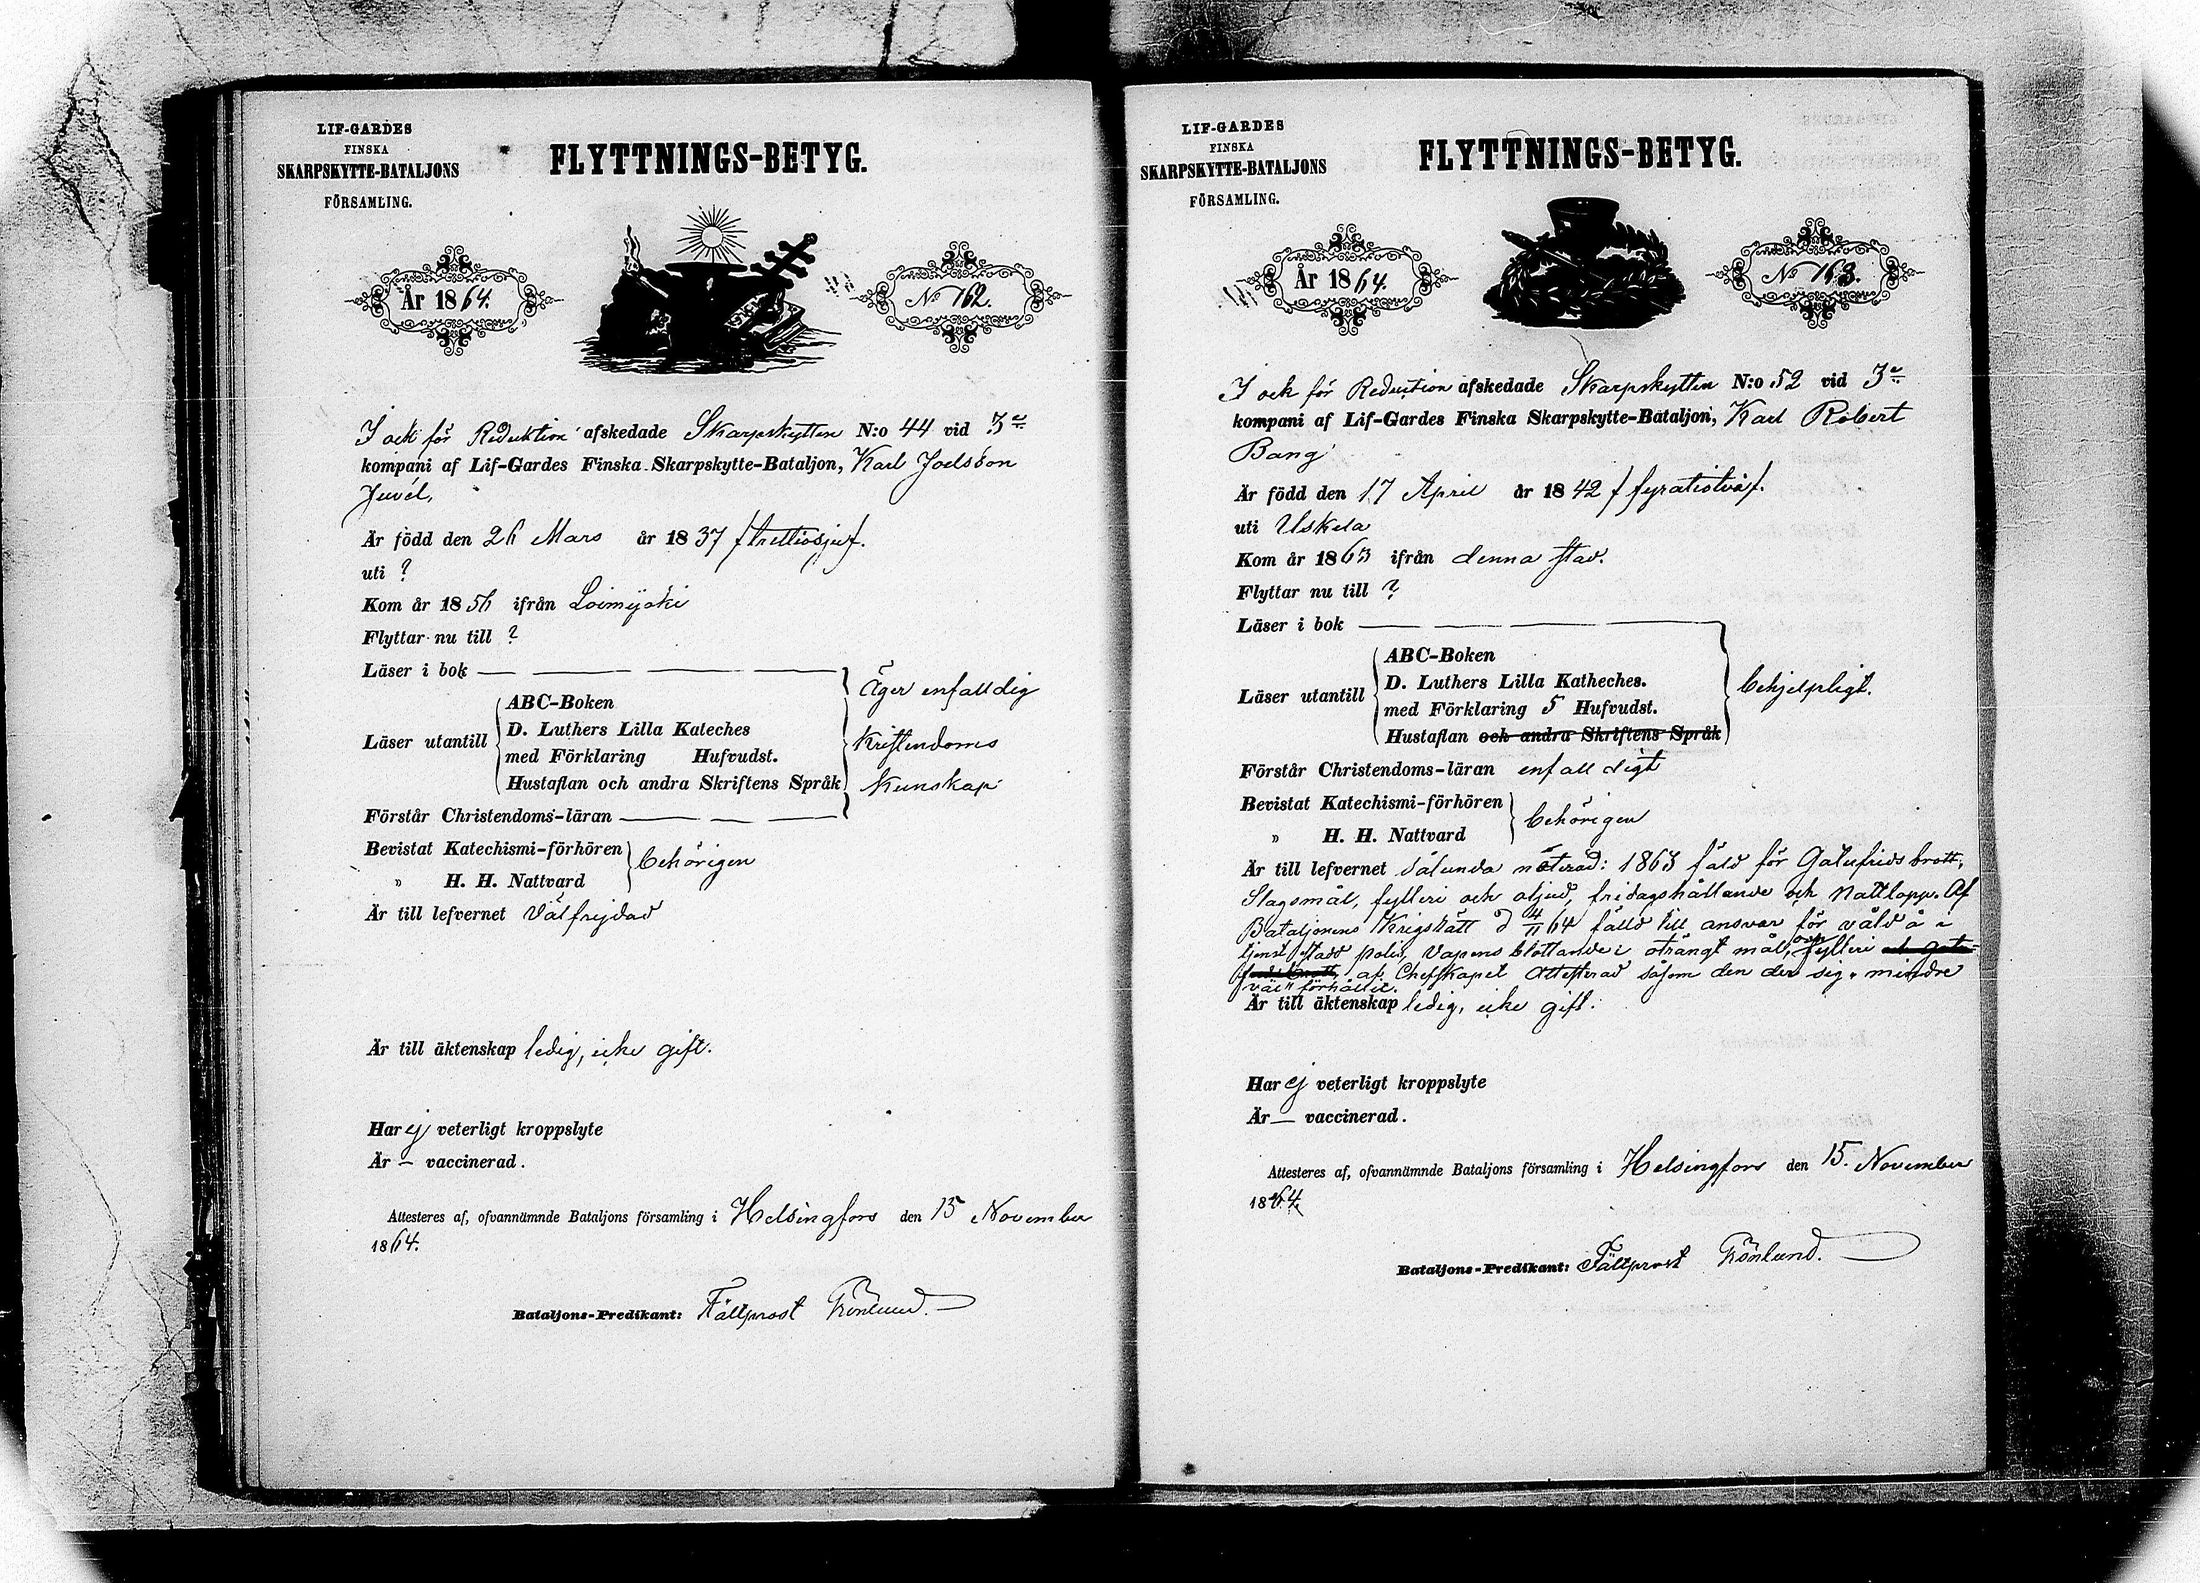 LIF-GARDES
FINSKA
SKARPSKYTTE-BATALJONS
FÖRSAMLING.
FLYTTNINGS-BETYG.
År 1864.
No 162.
I och för Reduktion afskedade Skarpskytten N:o 44 vid 3e
kompani af Lif-Gardes Finska Skarpskytte-Bataljon, Karl Joelsson
Juvél,
Är född den 26 Mars år 1837 /trettiosju/.
uti ?
Kom år 1856 ifrån Loimijoki
Flyttar nu till ?
Läser i bok
Läser utantill
ABC-Boken
D. Luthers Lilla Kateches
med Förklaring Hufvudst.
Hustaflan och andra Skriftens Språk
Förstår Christendoms-läran
Äger enfalldig
Kristendoms
Kunskap
Bevistat Katechismi-förhören
" H. H. Nattvard
behörigen
Är till lefvernet Välfrejdad
Är till äktenskap ledig, icke gift.
Har ej veterligt kroppslyte
Är — vaccinerad.
Attesteres af, ofvannämnde Bataljons församling i Helsingfors den 15 November
1864.
Bataljons-Predikant: Fältprost Grönlund.
LIF-GARDES
FINSKA
SKARPSKYTTE-BATALJONS
FÖRSAMLING.
FLYTTNINGS-BETYG.
År 1864.
No 163.
I och för Reduction afskedade Skarpskytten N:o 52 vid 3e
kompani af Lif-Gardes Finska Skarpskytte-Bataljon, Karl Robert
Bang
Är född den 17 April år 1842 /fyratiotvå/.
uti Uskela
Kom år 1863 ifrån denna stad.
Flyttar nu till ?
Läser i bok
Läser utantill
ABC-Boken
D. Luthers Lilla Katheches.
med Förklaring 5 Hufvudst.
Hustaflan och andra Skriftens Språk
behjelpligt.
Förstår Christendoms-läran enfalldigt
Bevistat Katechismi-förhören
" H. H. Nattvard
behörigen
Är till lefvernet sålunda noterad: 1863 fäld för Gatufridsbrott,
Slagsmål, fylleri och oljud, fridagshållande och Nattlopp. Af
Bataljonens Krigsrätt d 4/11 64 fälld till ansvar för våld å i
tjenst stadd polis, Vapens blottande i oträngt mål, och fylleri
af Chefskapet Attesterad såsom den der sig "mindre
väl" förhållit.
Är till äktenskap ledig, icke gift.
Har ej veterligt kroppslyte
Är — vaccinerad.
Attesteres af, ofvannämnde Bataljons församling i Helsingfors den 15. November
1864.
Bataljons-Predikant: Fältprost Grönlund.